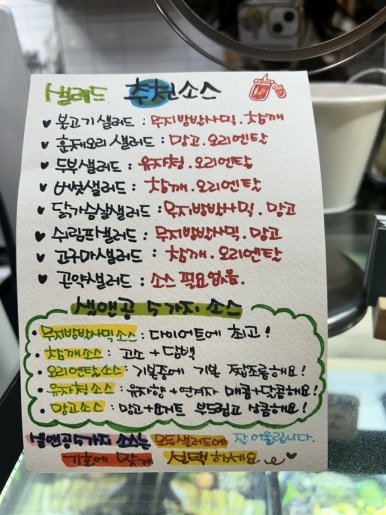 샐러드 추천소스
♥ 불고기샐러드 : 무지방발사믹. 참깨
♥ 훈제오리샐러드 : 망고. 오리엔탈
♥ 두부샐러드 : 유자청. 오리엔탈
♥ 버섯샐러드 : 참깨. 오리엔탈
♥ 닭가슴살샐러드 : 무지방발사믹. 망고
♥ 쉬림프샐러드 : 무지방발사믹. 망고
♥ 고구마샐러드 : 참깨. 오리엔탈
♥ 곤약샐러드 : 소스 필요없음.
샐앤공 5가지 소스
• 무지방발사믹소스 : 다이어트에 최고!
• 참깨소스 : 고소 + 담백
• 오리엔탈소스 : 기본중에 기본 짭조름해요!
• 유자청소스 : 유자향 + 연겨자 매콤+달콤해요!
• 망고소스 : 망고+요거트 부드럽고 상콤해요!
샐앤공5가지 소스는 모든샐러드에 잘 어울립니다.
기호에 맞게 선택하세요